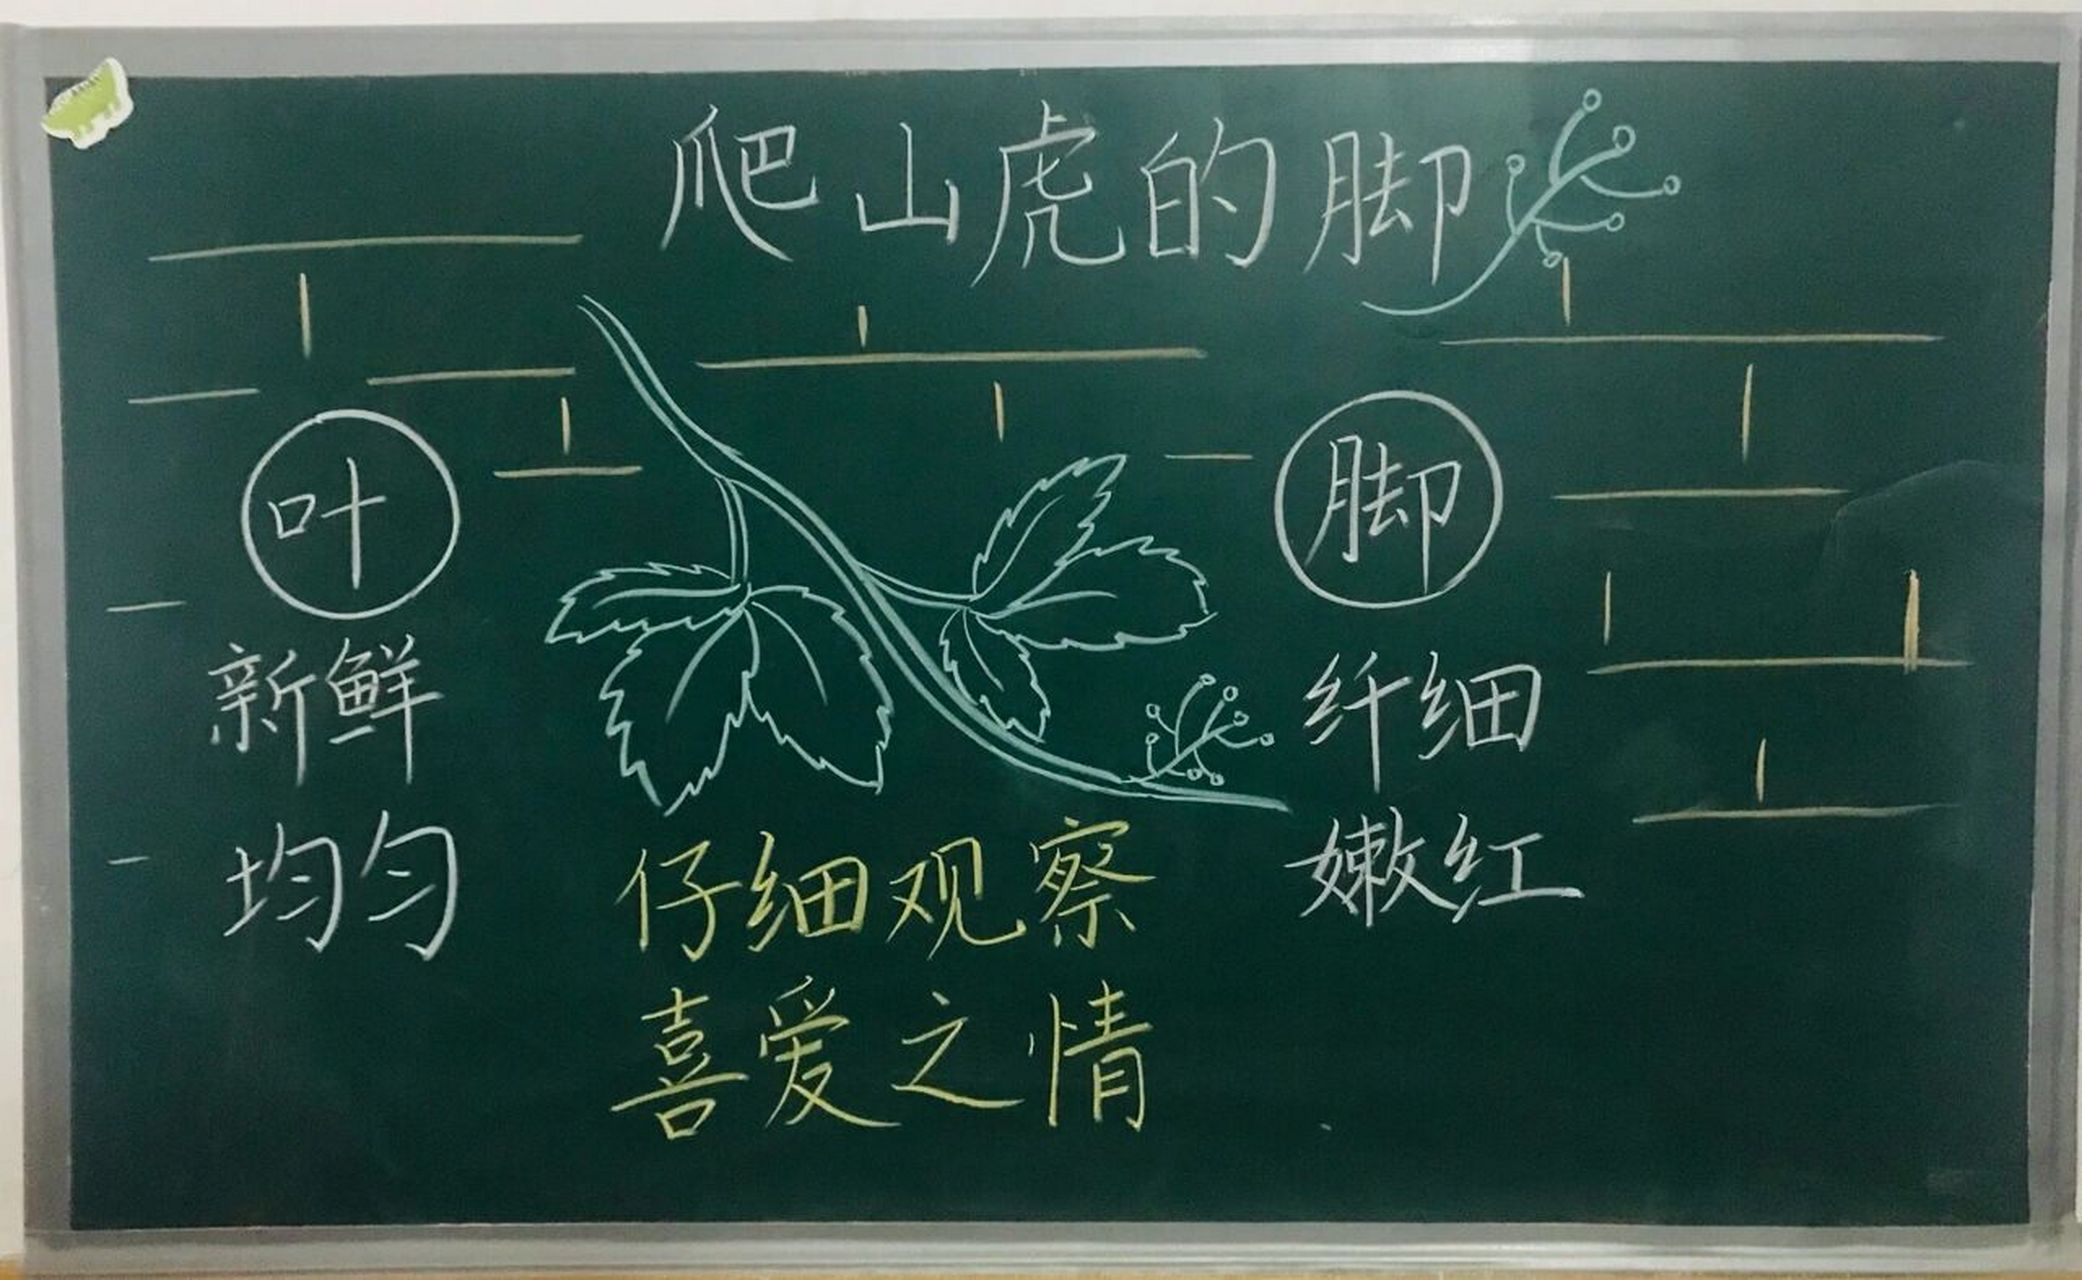 爬山虎的脚
叶
新鲜
均匀
脚
纤细
嫩红
仔细观察
喜爱之情